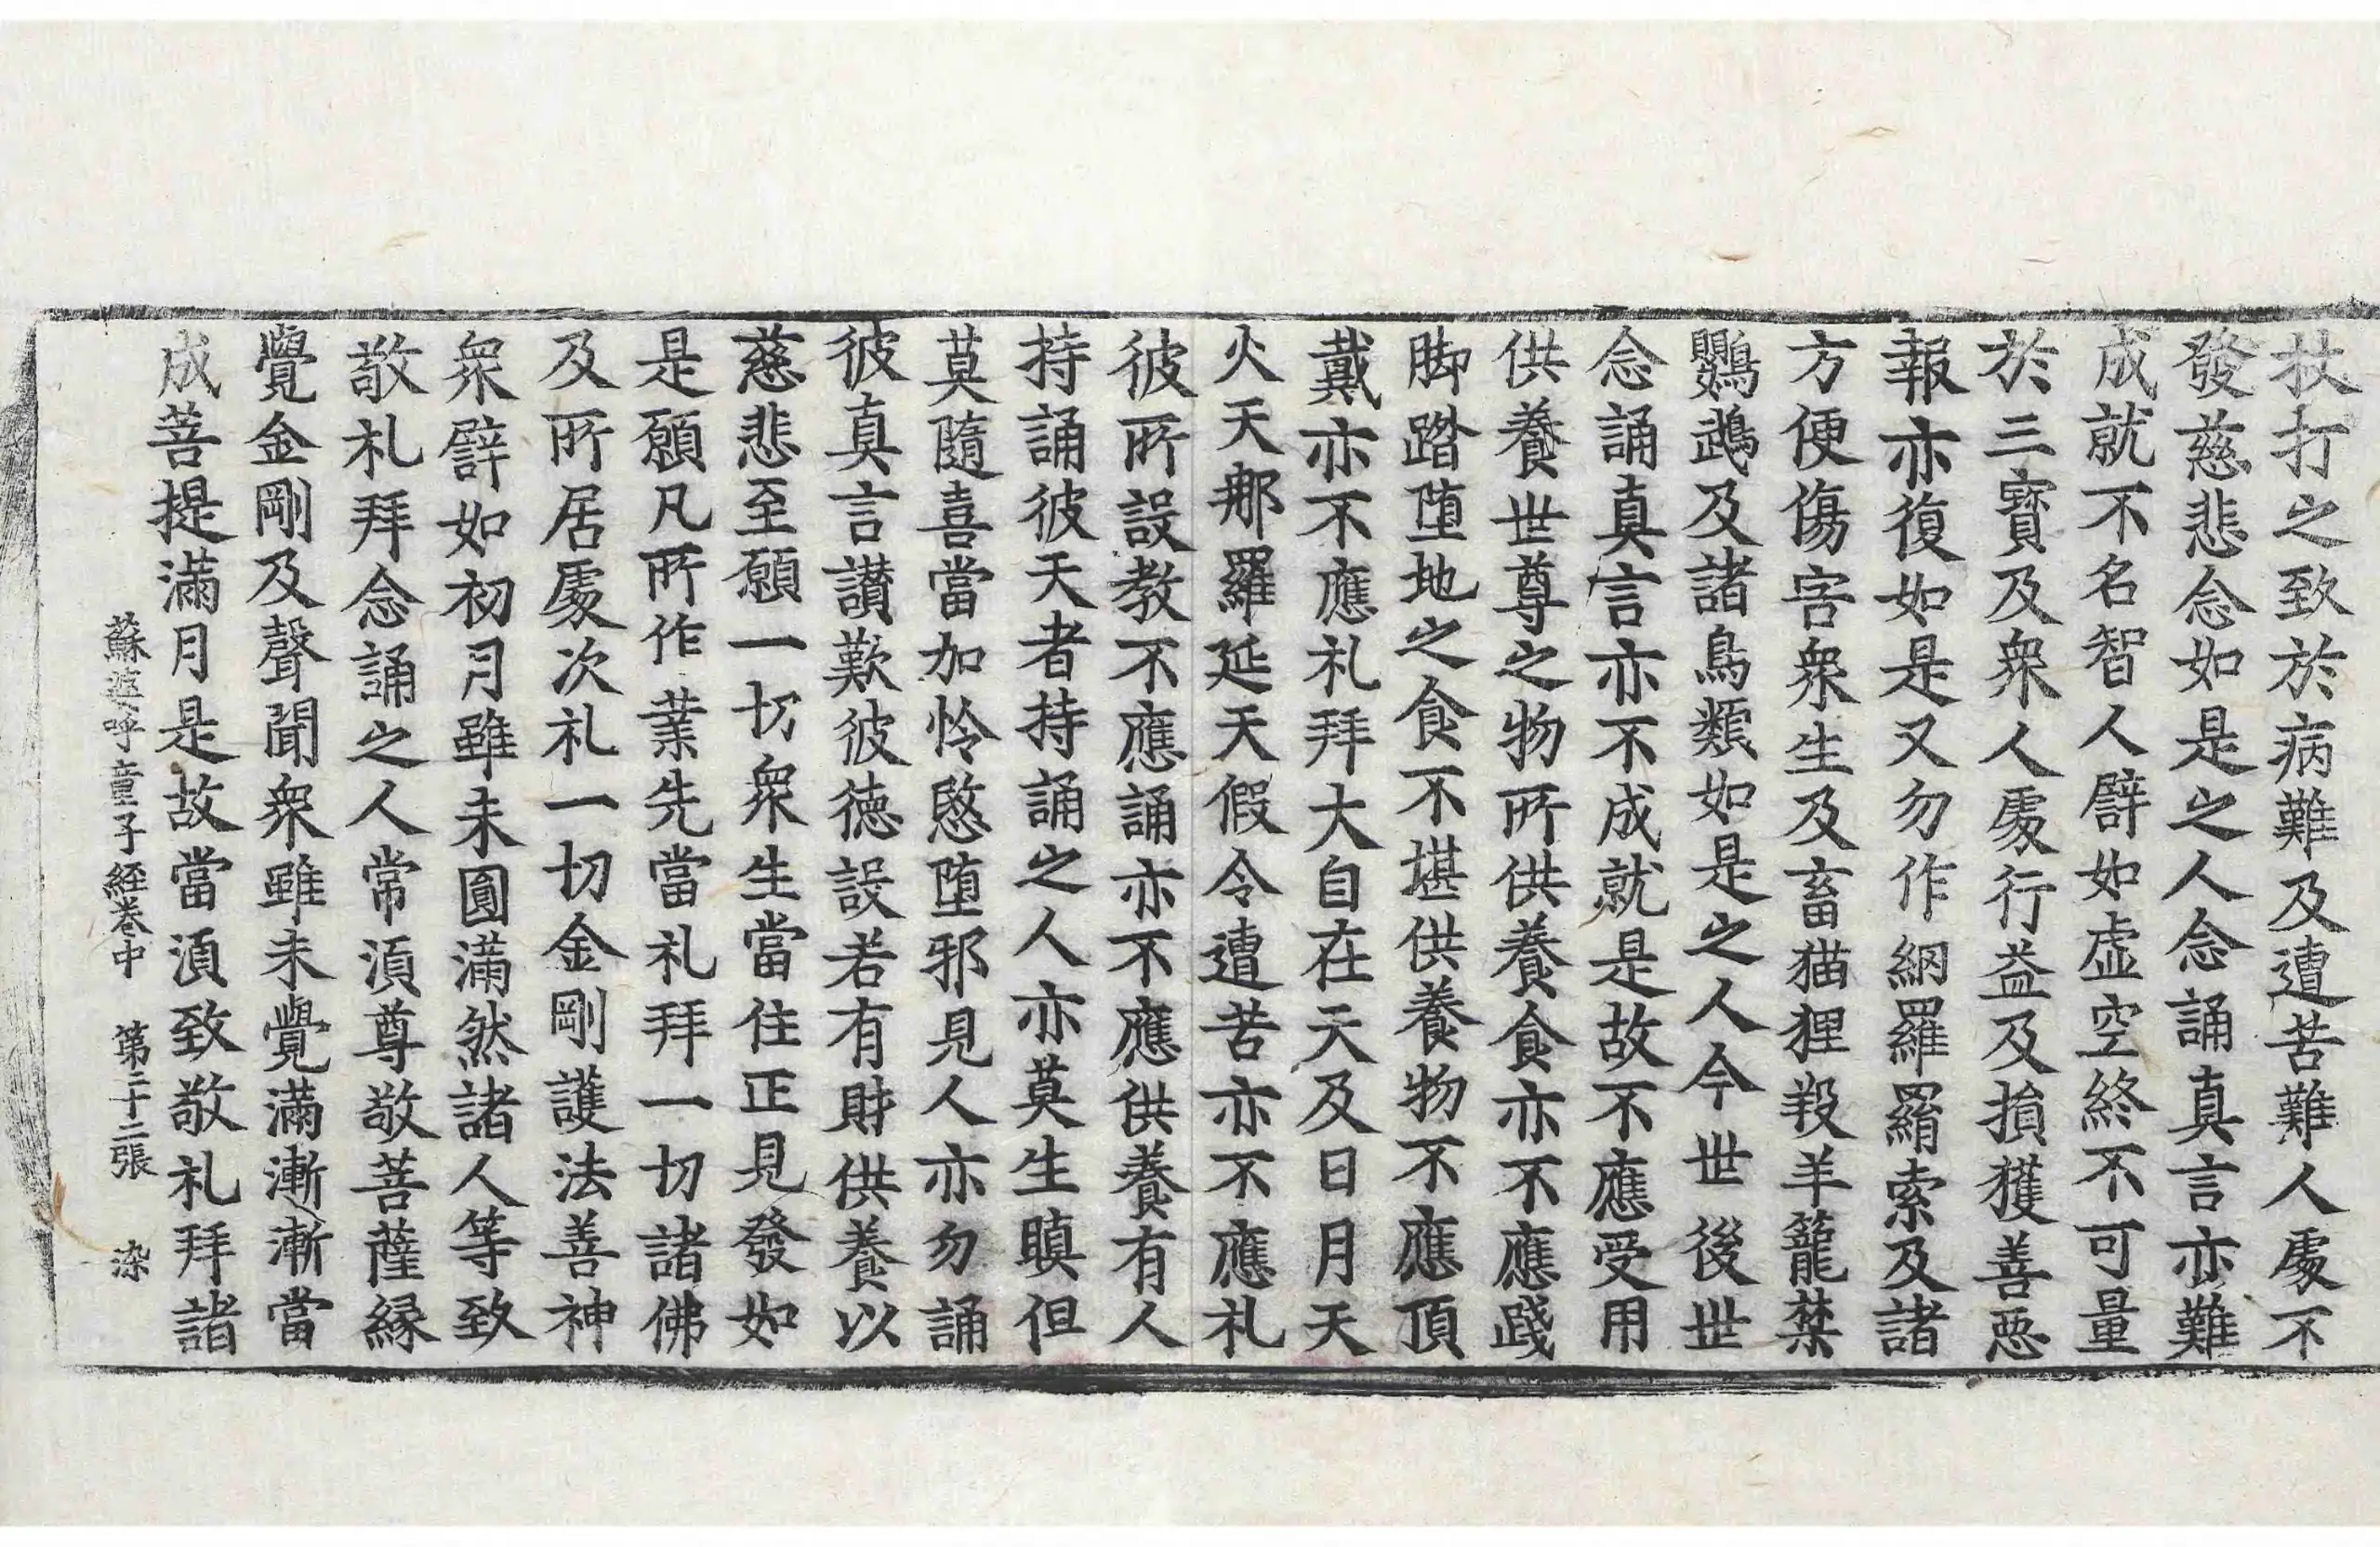 扙打之致於病難及遭苦難人處不
發慈悲念如是之人念誦真言亦難
成就不名智人譬如虛空終不可量
於三寳及衆人處行益及損獲善惡
報亦復如是又勿作網羅羂索及諸
方便傷害衆生及畜猫狸羖羊籠禁
鸚鵡及諸鳥類如是之人今世後世
念誦真言亦不成就是故不應受用
供養世尊之物所供養食亦不應踐
脚踏墮地之食不堪供養物不應頂
戴亦不應礼拜大自在天及日月天
火天那羅延天假令遭苦亦不應礼
彼所設教不應誦亦不應供養有人
持誦彼天者持誦之人亦莫生瞋但
莫隨喜當加怜愍墮邪見人亦勿誦
彼真言讃歎彼德設若有財供養以
慈悲至願一切衆生當住正見發如
是願凡所作業先當礼拜一切諸佛
及所居處次礼一切金剛護法善神
衆譬如初月雖未圓滿然諸人等致
敬礼拜念誦之人常須尊敬菩薩縁
覺金剛及聲聞衆雖未覺滿漸漸當
成菩提滿月是故當須致敬礼拜諸
蘇婆呼童子経卷中 第二十二張 染